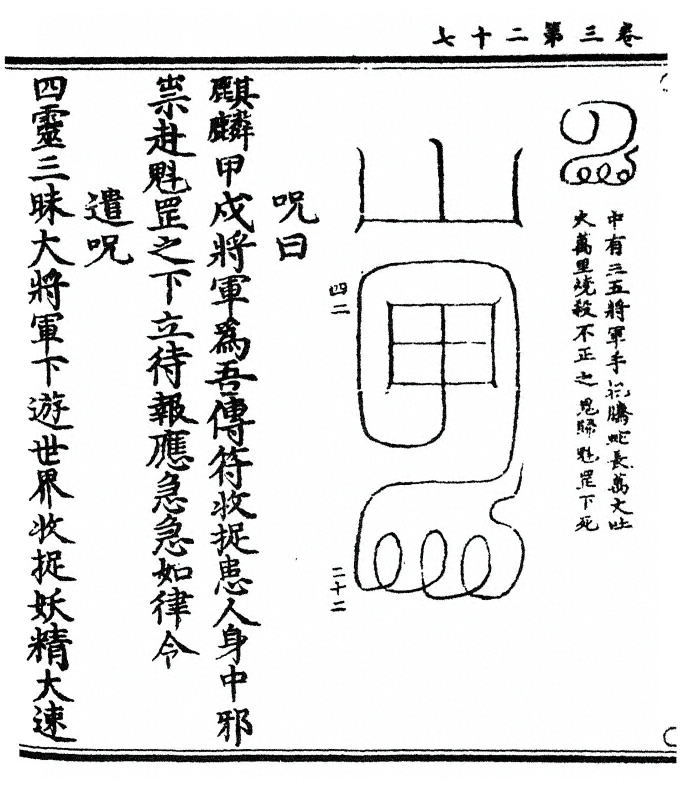 卷三第二十七
中有三五將軍手把騰蛇長萬丈吐
火萬里燒殺不正之鬼歸魁罡下死
四二
二十二
咒曰
麒麟甲戍將軍為吾傳符收捉患人身中邪
祟赴魁罡之下立待報應急急如律令
遣咒
四靈三昧大將軍下遊世界收捉妖精大速